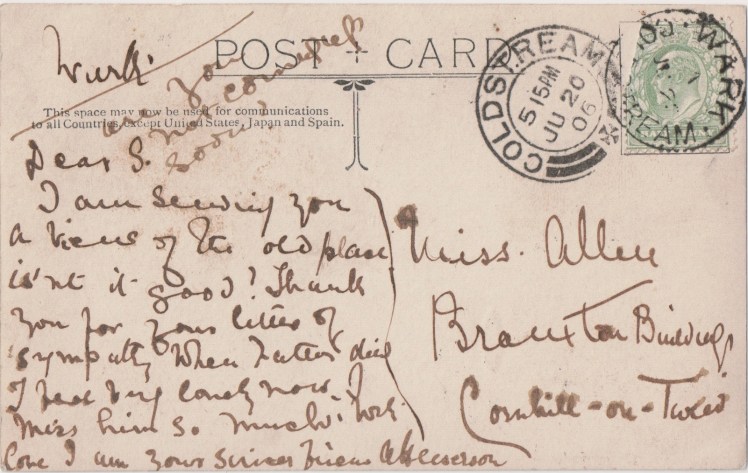 POST CARD
Wark
are you
coming
soon
This space may now be used for communications
to all Countries, except United States, Japan and Spain.
Dear S.
I am sending you
a view of the old place
is'nt it good? Thank
you for your letter of
sympathy when Father died
I feel very lonely now. I
miss him so much. With
love I am your sincere friend
Miss. Allen
Branxton Buildings
Cornhill-on-Tweed
COLDSTREAM
5 15PM
JU 20
06
WARK
COLDSTREAM